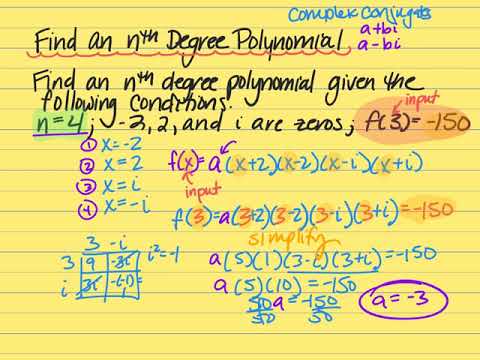 complex conjugates
a+bi
a-bi
Find an nth Degree Polynomial
Find an nth degree polynomial given the
following conditions.
input
n=4; -3, 2, and i are zeros; f(3)=-150
① x=-2
② x=2
③ x=i
④ x=-i
f(x)=a(x+2)(x-2)(x-i)(x+i)
input
f(3)=a(3+2)(3-2)(3-i)(3+i)=-150
simplify
a(5)(1)(3-i)(3+i)=-150
a(5)(10)=-150
50a=-150
50 50
a=-3
3 -i
3 9 -3i
i 3i -(-1)=
1
i²=-1